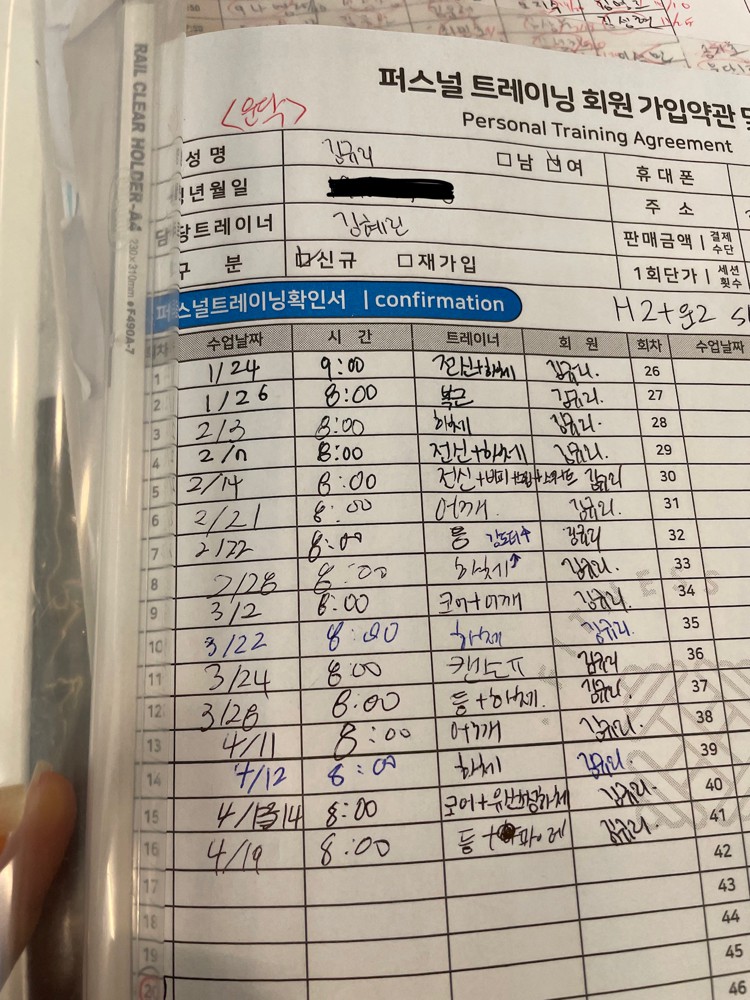 RAIL CLEAR HOLDER-A4 230×310mm #F490A-7
퍼스널 트레이닝 회원 가입약관 및
Personal Training Agreement
<운닥>
성명 김규리 남 여 휴대폰
년월일 주소
담당트레이너 김혜린 판매금액 | 결제수단
구분 신규 재가입 1회단가 | 세션횟수
퍼스널트레이닝확인서 | confirmation
H2+운2
회차 수업날짜 시간 트레이너 회원 회차 수업날짜
1 1/24 9:00 전신+하체 김규리. 26
2 1/26 8:00 복근 김규리. 27
3 2/3 8:00 하체 김규리. 28
4 2/ 8:00 전신+하체 김규리. 29
5 2/14 8:00 전신+버피 김규리 30
6 2/21 8:00 어깨. 김규리. 31
7 2/22 8:00 등 강도↑ 김규리 32
8 2/28 8:00 하체↑ 김규리. 33
9 3/2 8:00 코어+어깨 김규리. 34
10 3/22 8:00 하체 김규리. 35
11 3/24 8:00 김규리 36
12 3/28 8:00 등+하체. 김규리. 37
13 4/11 8:00 어깨 김규리. 38
14 4/12 8:00 하체 김규리. 39
15 4/14 8:00 코어+유산성하체 김규리. 40
16 4/19 8:00 등+ 김규리. 41
17 42
18 43
19 44
20 45
46